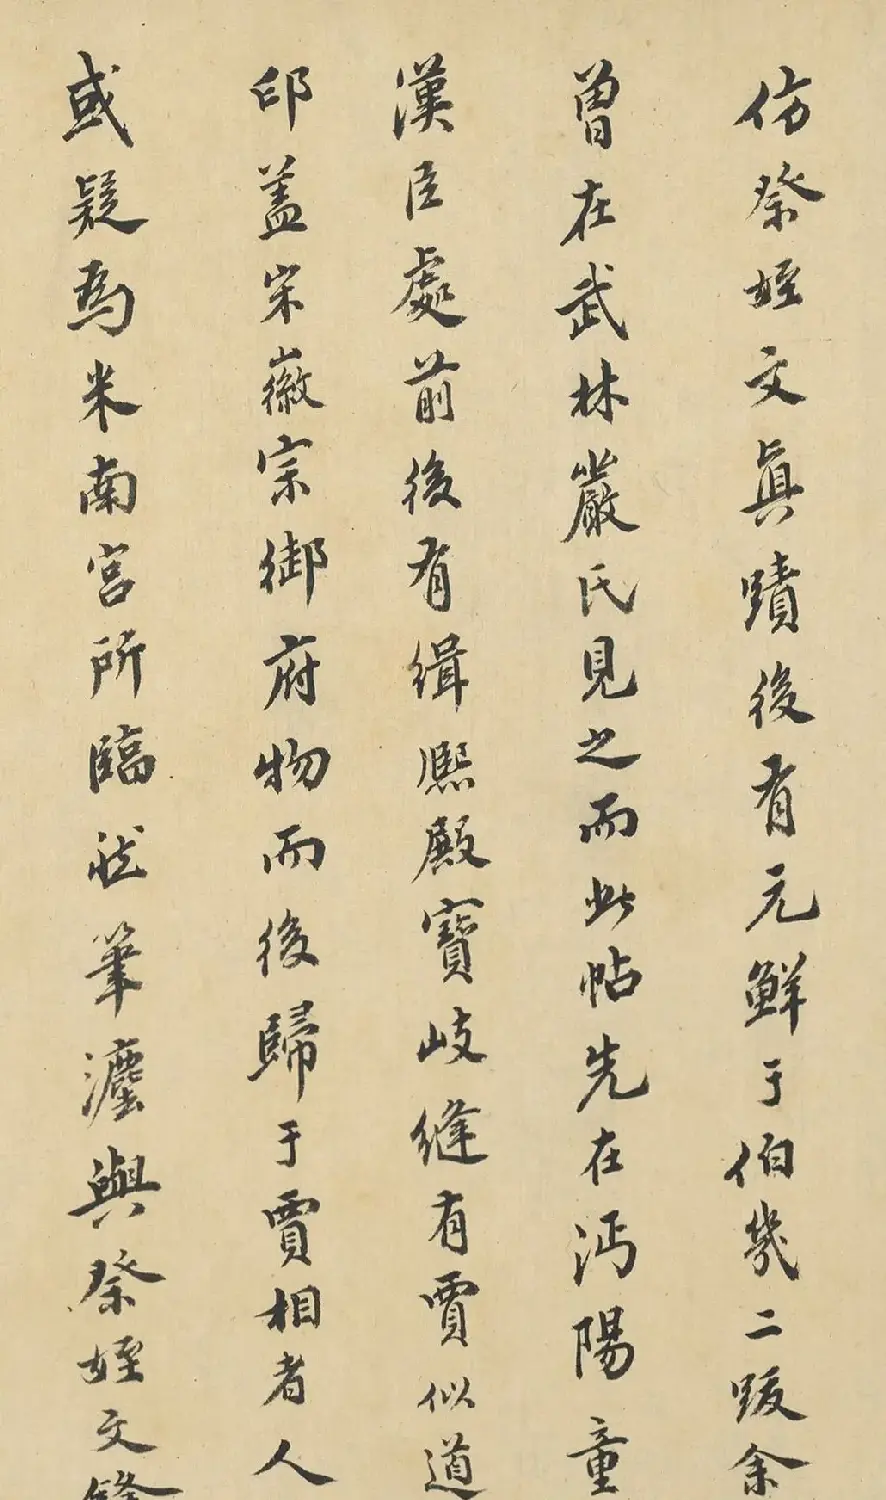 仿祭姪文真蹟後有元鮮于伯幾二跋余
曾在武林嚴氏見之而此帖先在沔陽童
漢臣處前後有緝熈殿寶岐縫有賈似道
印盖宋徽宗御府物而後歸于賈相者人
或疑為米南宮所臨然筆法與祭姪文